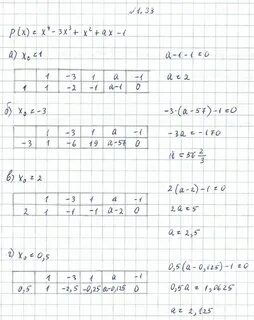 №1.33
P(x) = x⁴ - 3x³ + x² + ax - 1
а) x₀ = 1
a - 1 - 1 = 0
1 -3 1 a -1
1 1 -2 -1 a-1 0
a = 2
б) x₀ = -3
-3·(a - 57) - 1 = 0
1 -3 1 a -1
-3 1 -6 19 a-57 0
-3a = -170
a = 56 2/3
в) x₀ = 2
2(a - 2) - 1 = 0
1 -3 1 a -1
2 1 -1 -1 a-2 0
2a = 5
a = 2,5
г) x₀ = 0,5
0,5(a - 0,125) - 1 = 0
1 -3 1 a -1
0,5 1 -2,5 -0,25 a-0,125 0
0,5a = 1,0625
a = 2,125